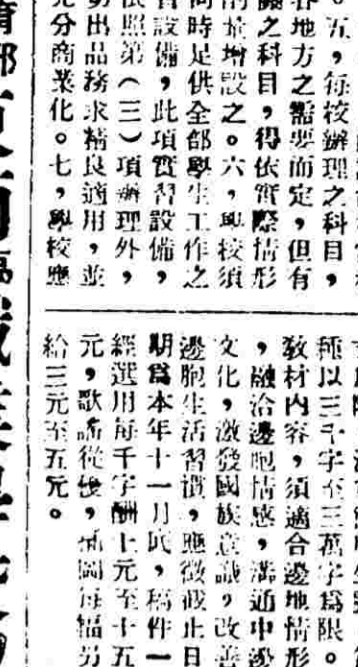 。五，每校辦理之科目，
各地方之需要而定，但有
之科目，得依實際情形
增設之。六，學校須
同時是供全部學生工作之
設備，此項實習設備，
依照第（三）項辦理外，
出品務求精良適用，並
充分商業化。七，學校應
種以三千字至三萬字爲限。
教材內容，須適合邊地情形
，融洽邊胞情感，溝通中邊
文化，激發國族意識，改善
邊胞生活習慣，應徵截止日
期爲本年十一月底，稿件一
經選用每千字酬十元至十五
元，歌謠從優，插圖每幅另
給三元至五元。